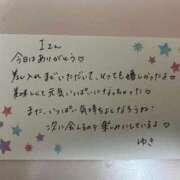 Iさん
今日はありがとう♡
差し入れまでいただいて、とっても嬉しかったよ♡
美味しくて元気いっぱいになっちゃった♡
また、いっぱい気持ちよくなろうね♡
次に会えるのを楽しみにしているよ
ゆき